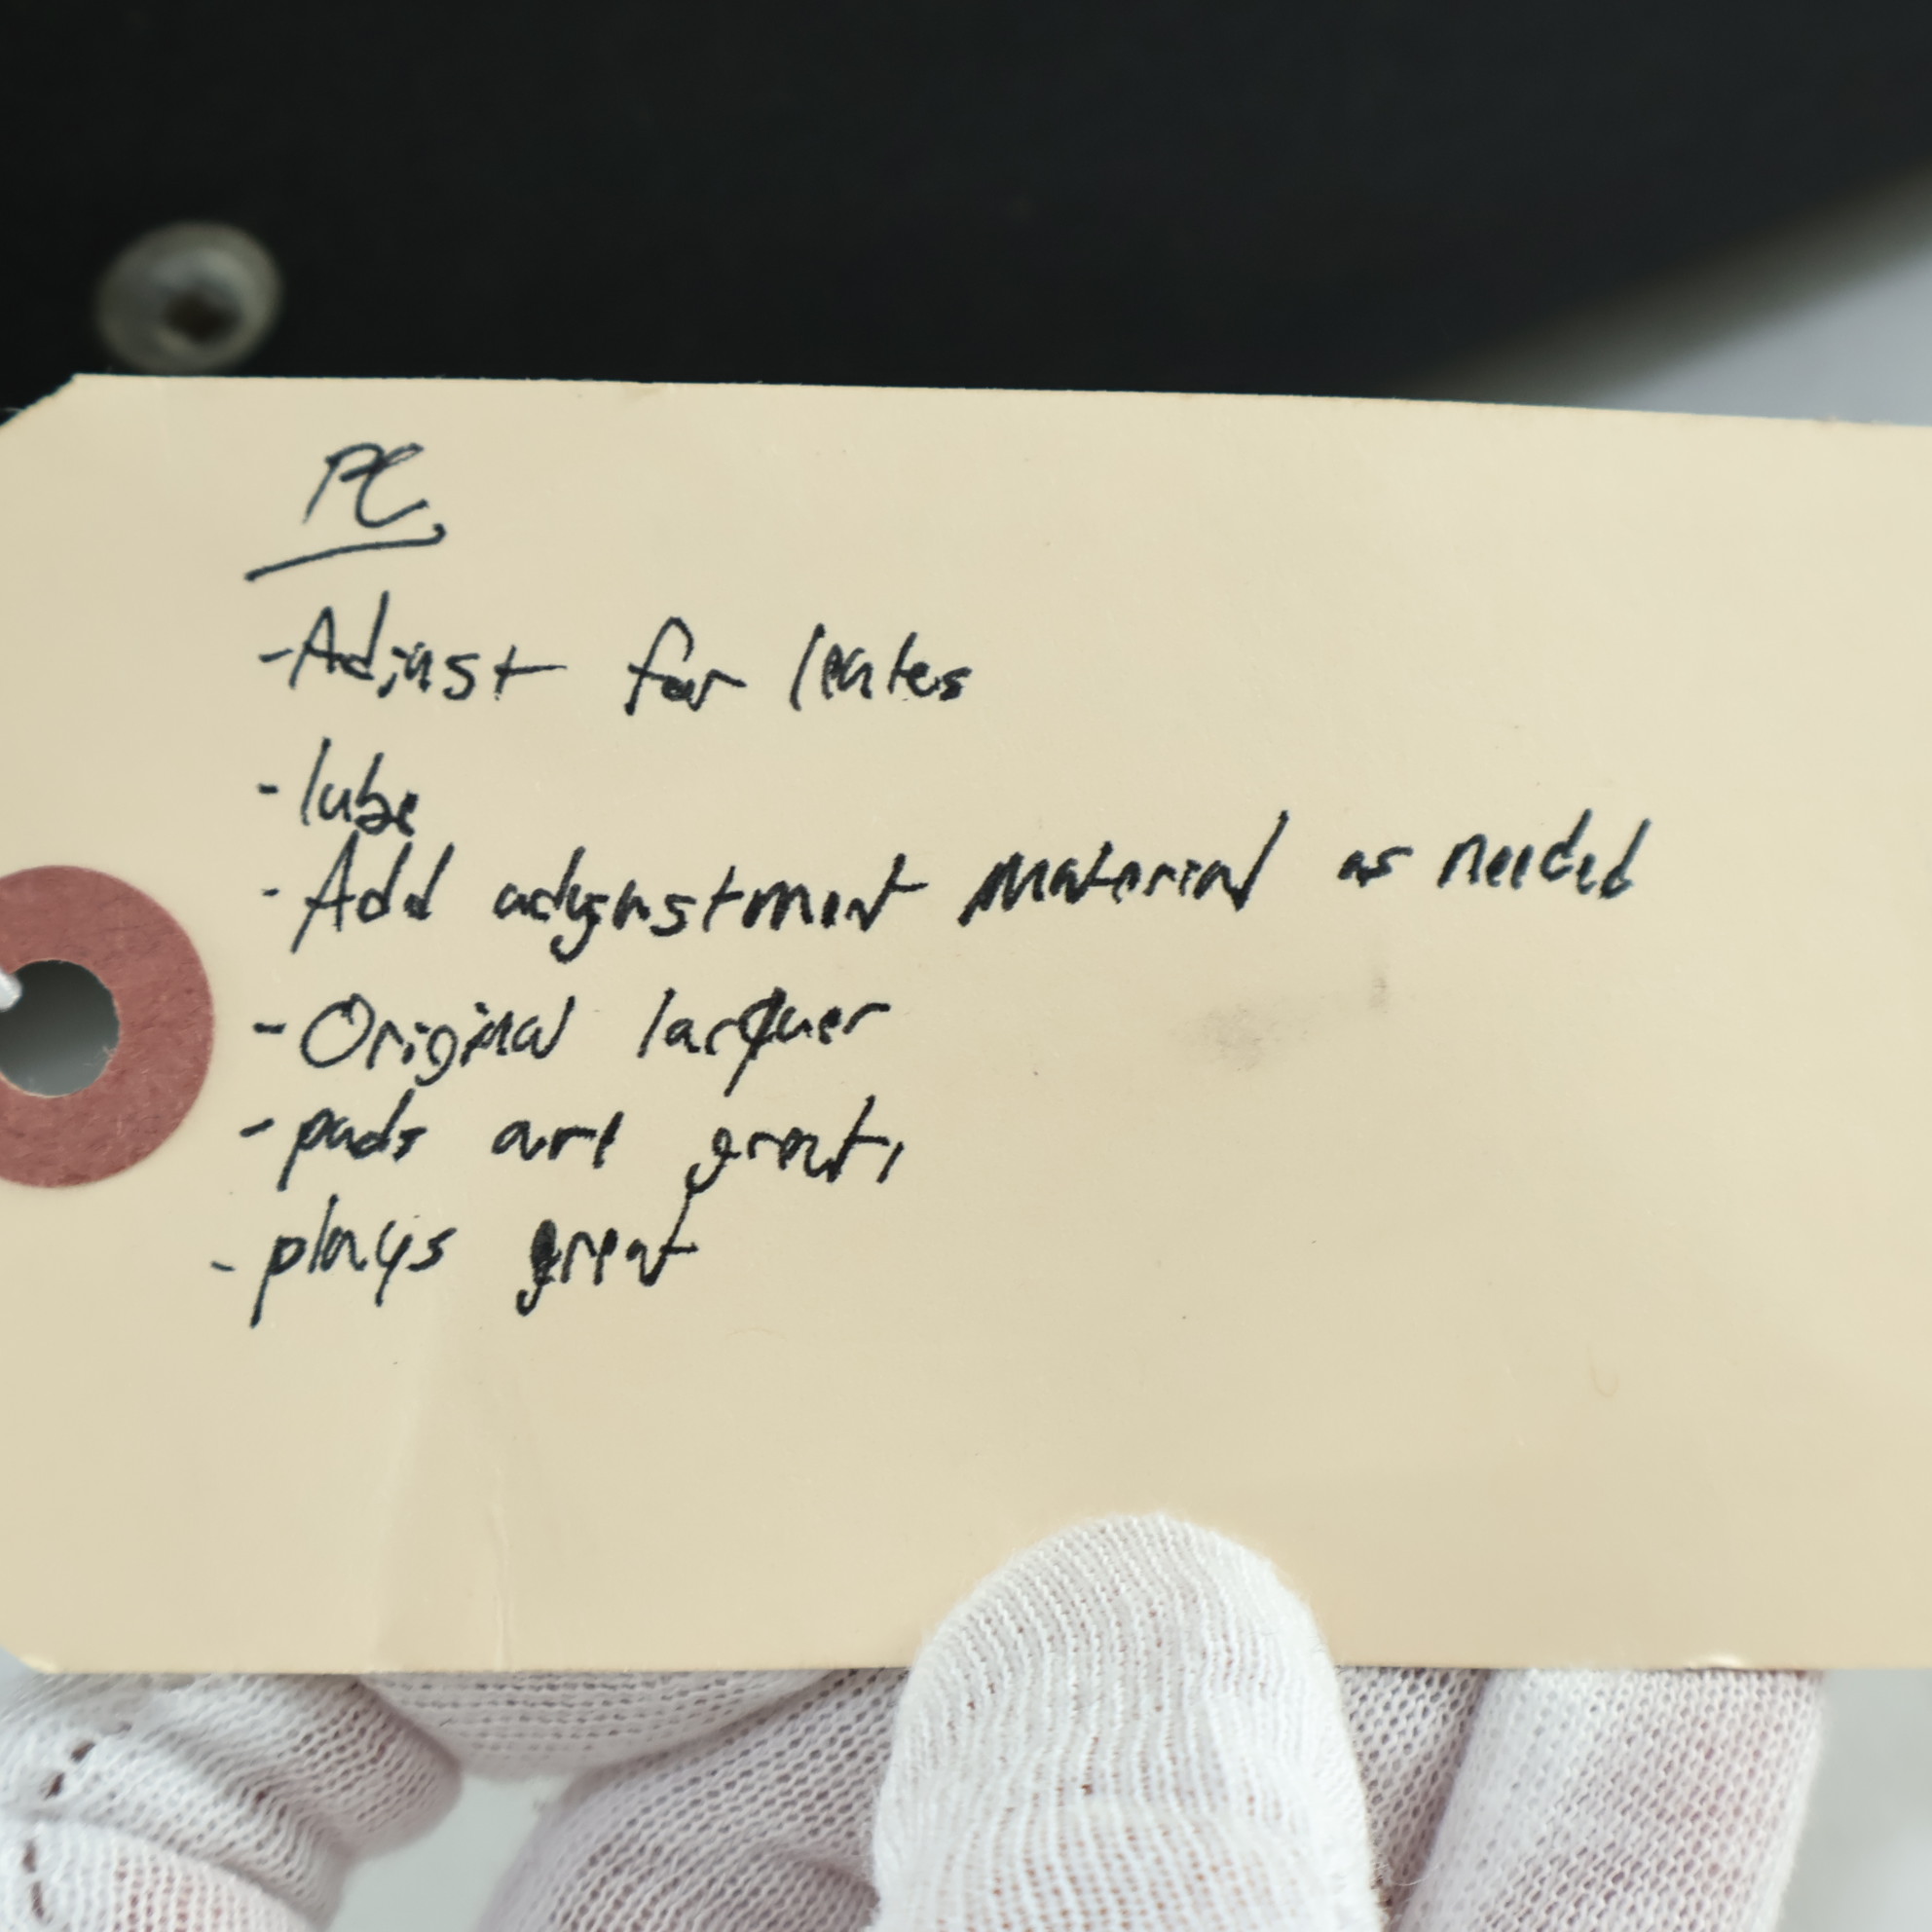 PC
- Adjust for leakes
- lube
- Add adjustment material as needed
- Original lacquer
- pads are great,
- plays great